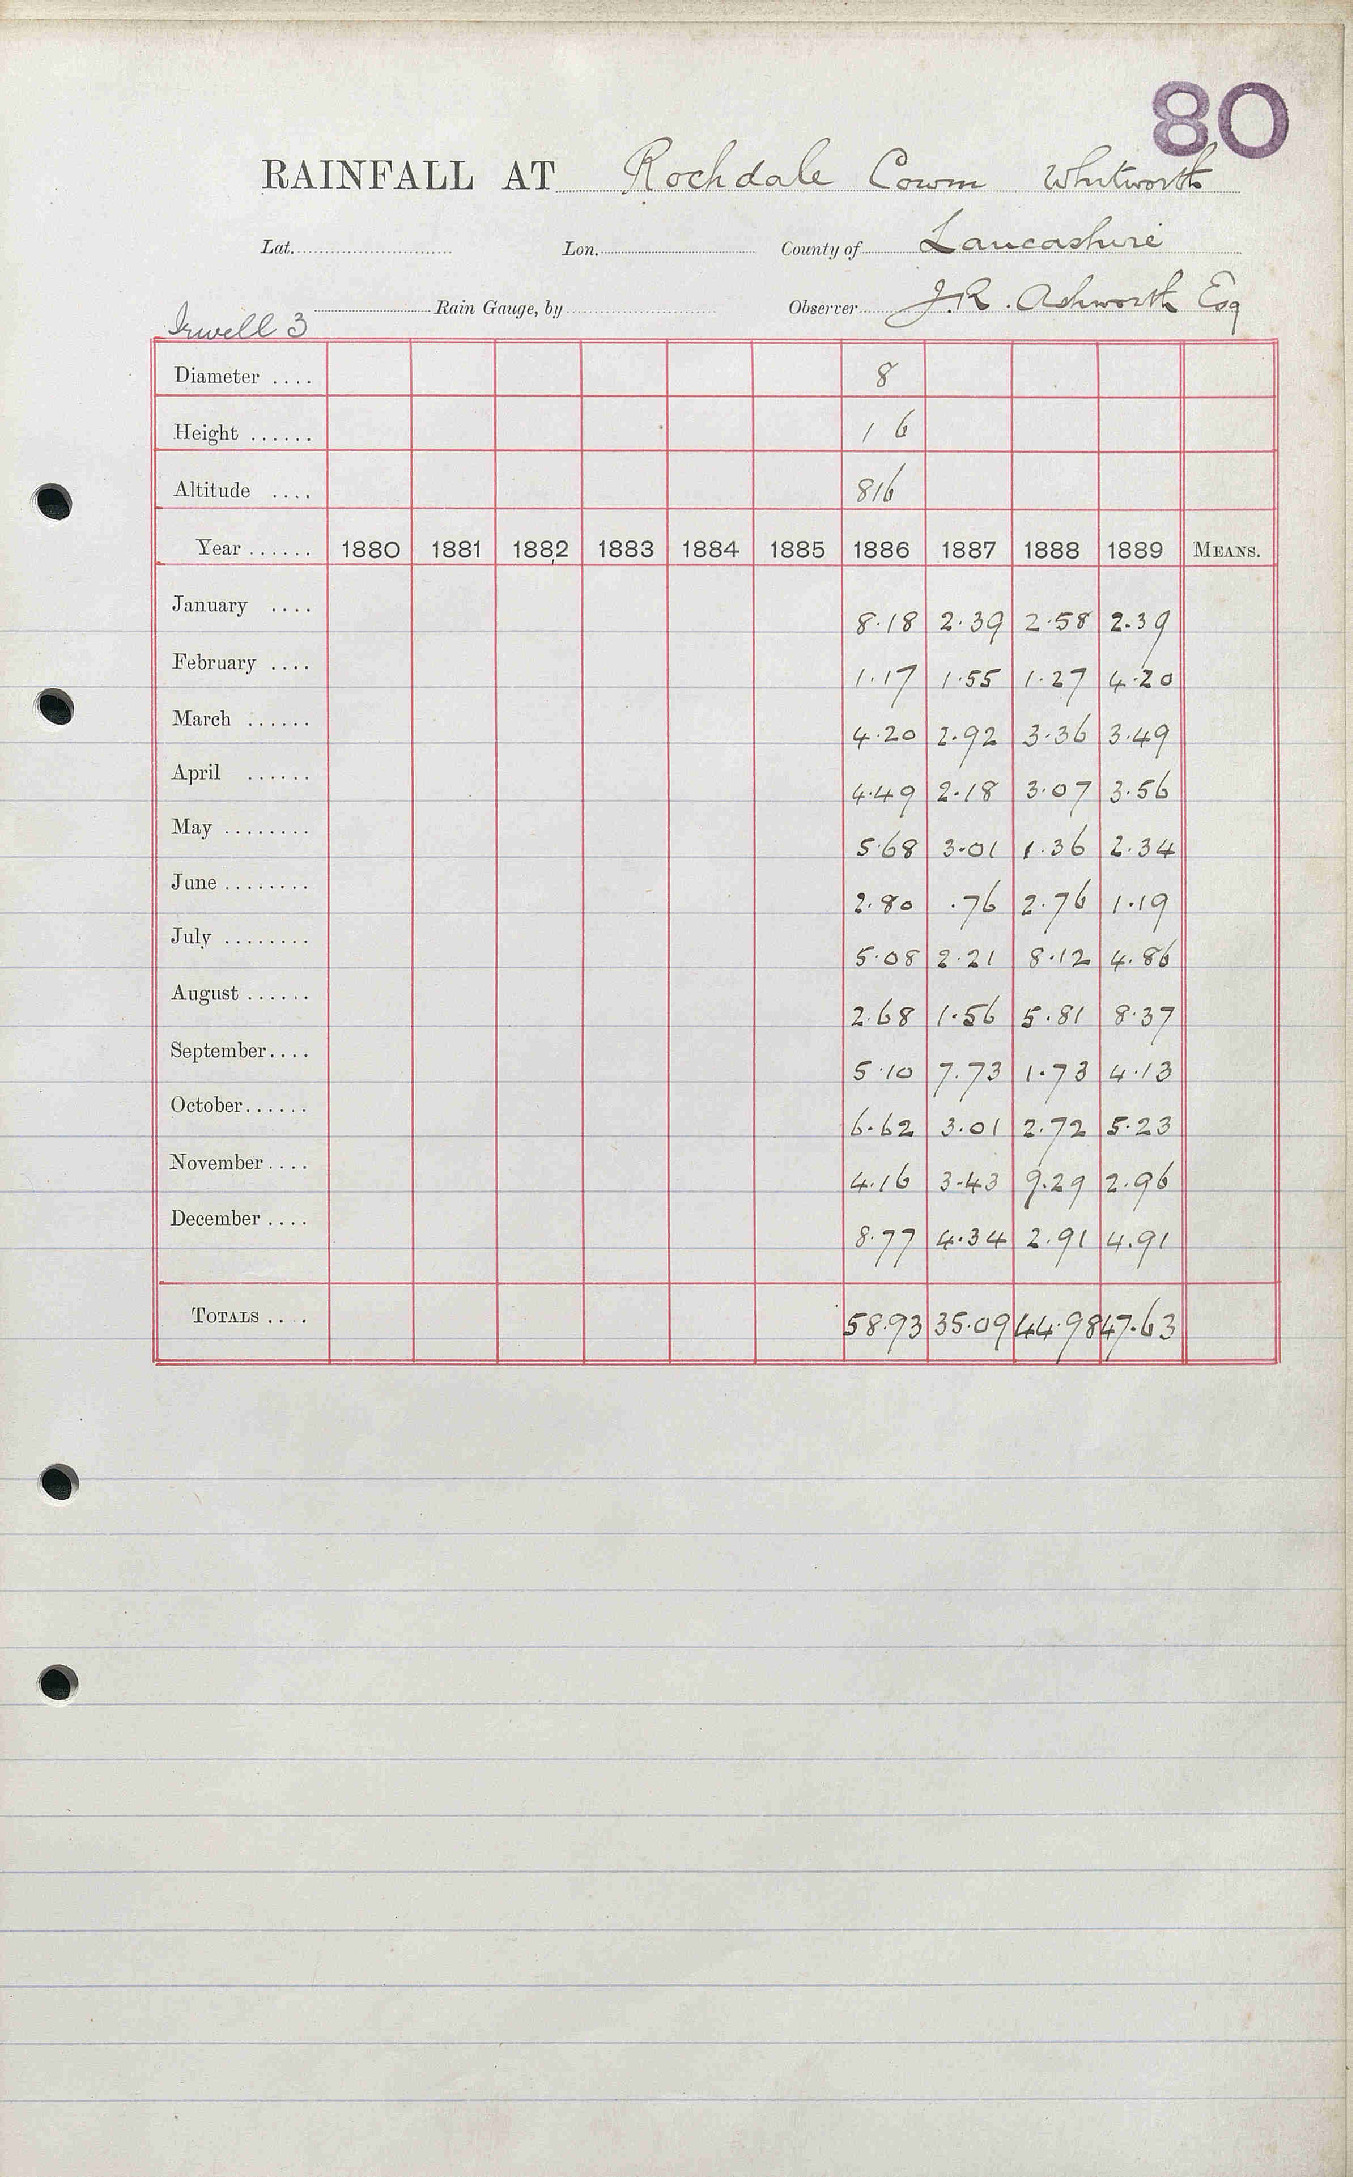 80
RAINFALL AT Rochdale Cowm Whitworth
Lat. Lon. County of Lancashire
Rain Gauge, by Observer J.R. Ashworth Esq
Irwell 3
Diameter .... 8
Height ...... 1 6
Altitude .... 816
Year ...... 1880 1881 1882 1883 1884 1885 1886 1887 1888 1889 MEANS.
January .... 8.18 2.39 2.58 2.39
February .... 1.17 1.55 1.27 4.20
March ...... 4.20 2.92 3.36 3.49
April ...... 4.49 2.18 3.07 3.56
May ........ 5.68 3.01 1.36 2.34
June ........ 2.80 .76 2.76 1.19
July ........ 5.08 2.21 8.12 4.86
August ...... 2.68 1.56 5.81 8.37
September.... 5.10 7.73 1.73 4.13
October...... 6.62 3.01 2.72 5.23
November.... 4.16 3.43 9.29 2.96
December .... 8.77 4.34 2.91 4.91
TOTALS .... 58.93 35.09 44.98 47.63